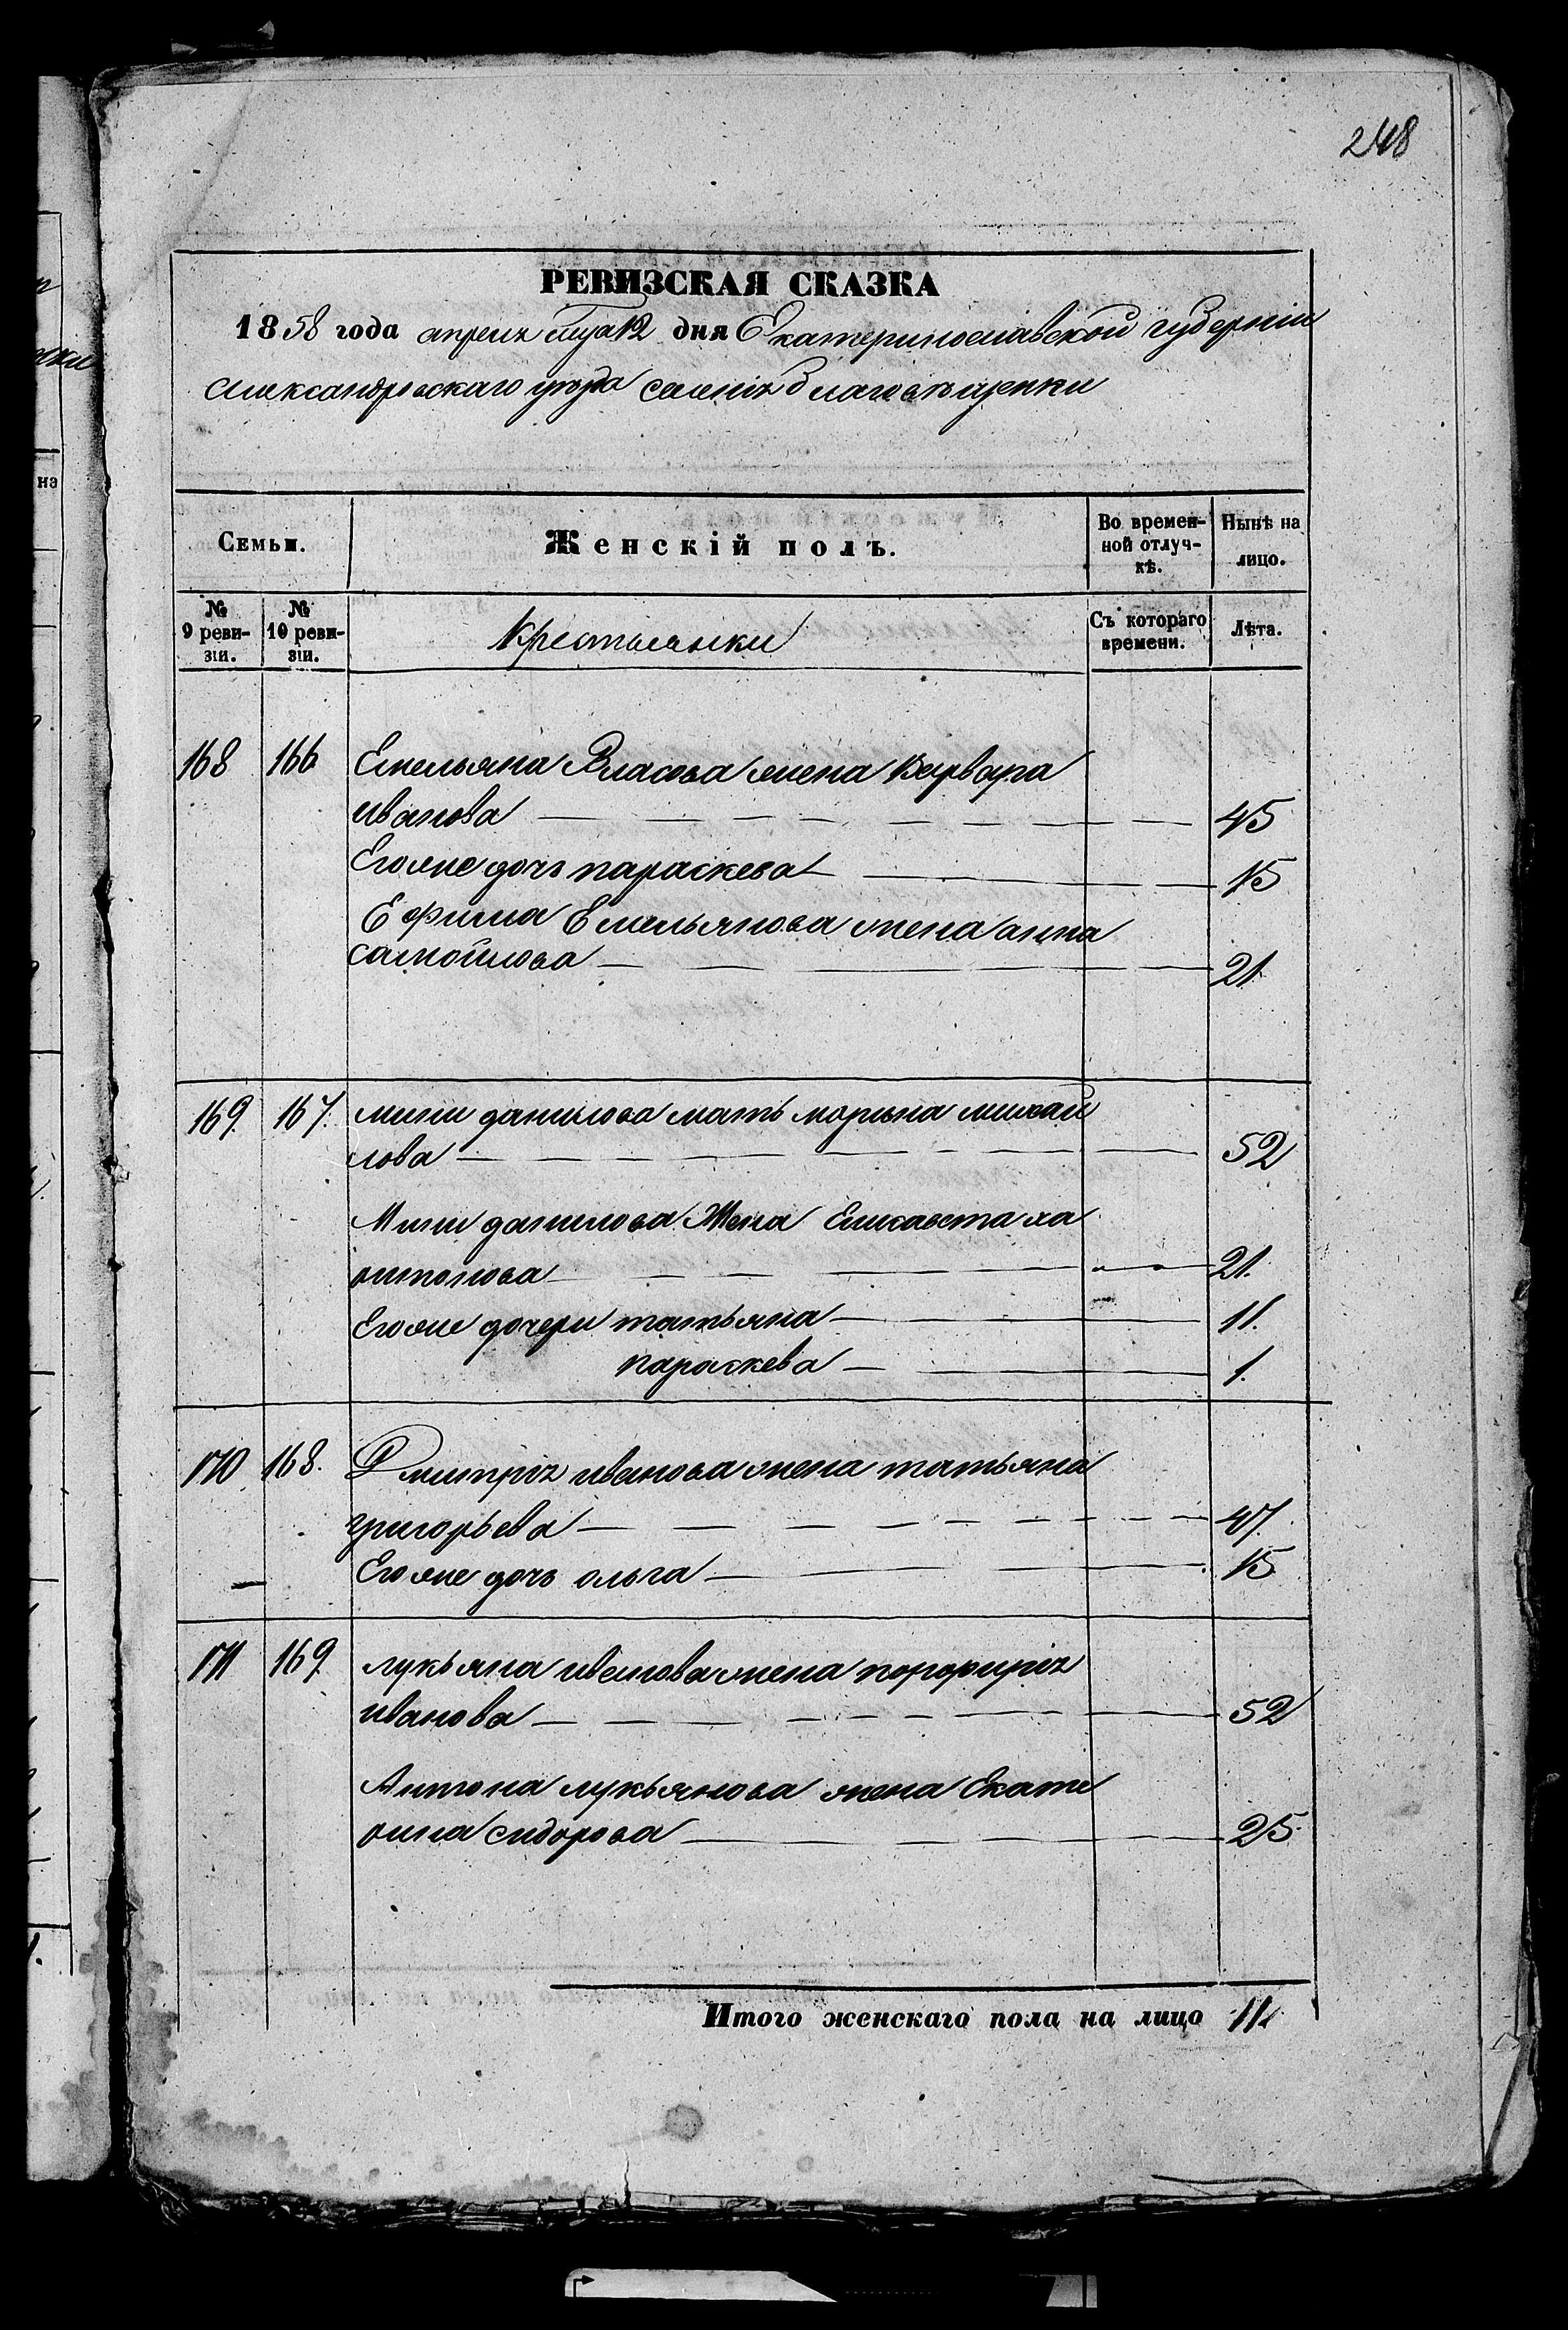 248
РЕВИЗСКАЯ СКАЗКА
1858 года апреля мца 12 дня Екатеринославской губерніи
Александровскаго уѣзда селенія Благовѣщенки
Семьи.
Женскій полъ.
Во времен-
ной отлуч-
кѣ.
Нынѣ на
лицо.
№
9 реви-
зіи.
№
10 реви-
зіи.
Крестьянки
Съ котораго
времени.
Лѣта.
168 166 Емельяна Власова жена Варвара
Иванова 45
Егоже дочь параскева 15
Ефима Емельянова жена анна
самойлова 21
169 167. мини данилова мать марьяна михай
лова 52
Мини данилова Жена Елисавета ха
ритонова 21.
Егоже дочери татьяна 11.
параскева 1.
170 168. Дмитрія иванова жена татьяна
григорьева 47
Егоже дочь ольга 15
171 169 лукьяна иванова жена порфирія
иванова 52
Антона лукьянова жена Екате
рина сидорова 25
Итого женскаго пола на лицо 11
на